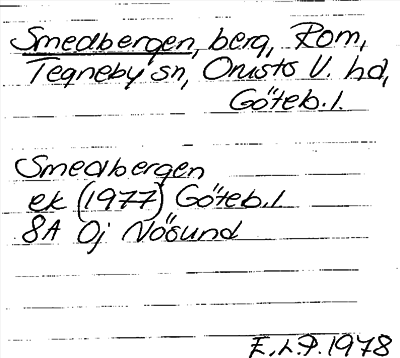 Smedbergen, berg, Rom,
Tegneby sn, Orusts V. hd,
Göteb. l.
Smedbergen
ek (1977) Göteb. l
8A 0j Nösund
E.L.P. 1978